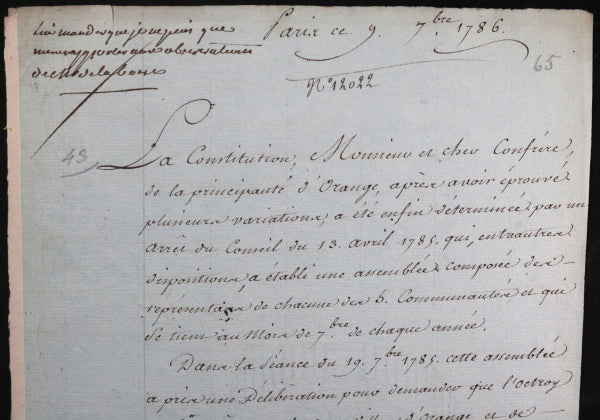 Paris ce 9. 7.bre 1786.
aux observations
N.o 12022
65
49
La Constitution, Monsieur et cher Confrére,
de la principauté d'Orange, après avoir éprouvé
plusieurs variations, a été enfin déterminée par un
arrêt du Conseil du 13. avril 1785. qui, entreautres
dispositions, a établi une assemblée composée des
représentans de chacune des 5. Communautés et qui
se tient au Mois de 7.bre de chaque année.
Dans la Séance du 19. 7.bre 1785. cette assemblée
a pris une Délibération pour demander que l'octroy
d'Orange et de